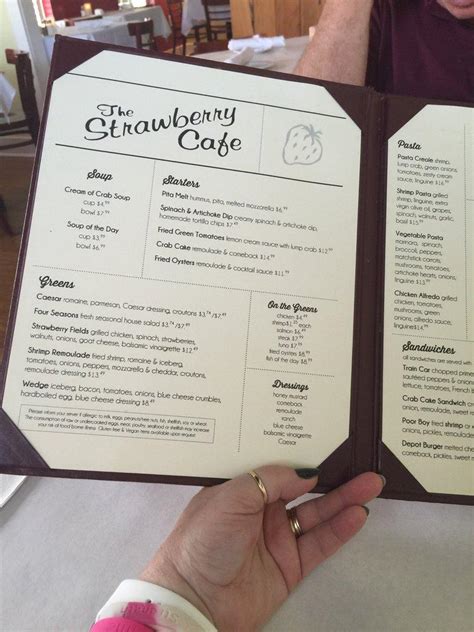 The
Strawberry
Cafe
Soup
Cream of Crab Soup
cup $4.99
bowl $7.99
Soup of the Day
cup $3.99
bowl $5.99
Starters
Pita Melt hummus, pita, melted mozzarella $6.99
Spinach & Artichoke Dip creamy spinach & artichoke dip,
homemade tortilla chips $7.49
Fried Green Tomatoes lemon cream sauce with lump crab $12.99
Crab Cake remoulade & comeback $14.99
Fried Oysters remoulade & cocktail sauce $11.99
Greens
Caesar romaine, parmesan, Caesar dressing, croutons
Four Seasons fresh seasonal house salad
Strawberry Fields grilled chicken, spinach, strawberries,
walnuts, onions, goat cheese, balsamic vinaigrette $12.49
Shrimp Remoulade fried shrimp, romaine & iceberg,
tomatoes, onions, peppers, mozzarella & cheddar, croutons,
remoulade dressing $13.49
Wedge iceberg, bacon, tomatoes, onions, blue cheese crumbles,
hardboiled egg, blue cheese dressing $8.49
Please inform your server if allergic to milk, eggs, peanuts/tree nuts, fish, shellfish, soy or wheat.
The consumption of raw or undercooked eggs, meat, poultry, seafood or shellfish may increase
your risk of food borne illness. Gluten-free & Vegan items available upon request.
On the Greens
chicken
shrimp each
salmon $6.99
steak $7.99
tuna $7.99
fried oysters $8.99
fish of the day $8.99
Dressings
honey mustard
comeback
remoulade
ranch
blue cheese
balsamic vinegrette
Caesar
Pasta
Pasta Creole shrimp,
green onions,
tomatoes, zesty creole
sauce, linguine $16.99
Shrimp Pasta grilled
shrimp, extra
virgin olive oil, grapes,
spinach, walnuts, garlic,
basil $15.99
Vegetable Pasta
marinara, spinach,
broccoli, peppers,
matchstick carrots,
mushroom, tomatoes,
artichoke hearts, onions,
linguine
Chicken Alfredo grilled
chicken, mushrooms,
tomatoes, onions, alfredo
sauce, linguine $14.99
Sandwiches
all sandwiches are served with
Train Car chopped prime
sautéed peppers & onions
and french
Crab Cake Sandwich
onions, pickles, remoulade
Poor Boy fried
onions, pickles, remoulade
Depot Burger
comeback, pickles, sweet